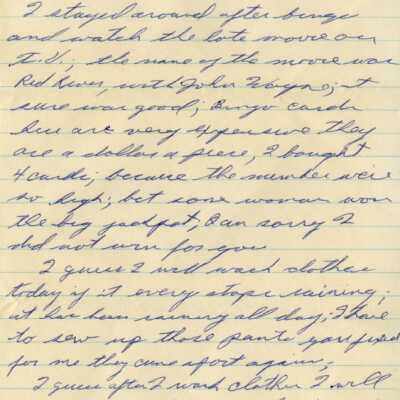 I stayed around after bingo
and watch the late movie on
T.V.; the name of the movie was
Red River, with John Wayne; it
sure was good; Bingo cards
here are very expensive they
are a dollar a piece, I bought
4 cards; because the number were
so high; but some woman won
the big jackpot; I am sorry I
did not win for you
I guess I will wash clothes
today if it every stops raining;
it has been raining all day; I have
to sew up those pants you fixed
for me they came apart again;
I guess after I wash clothes I will